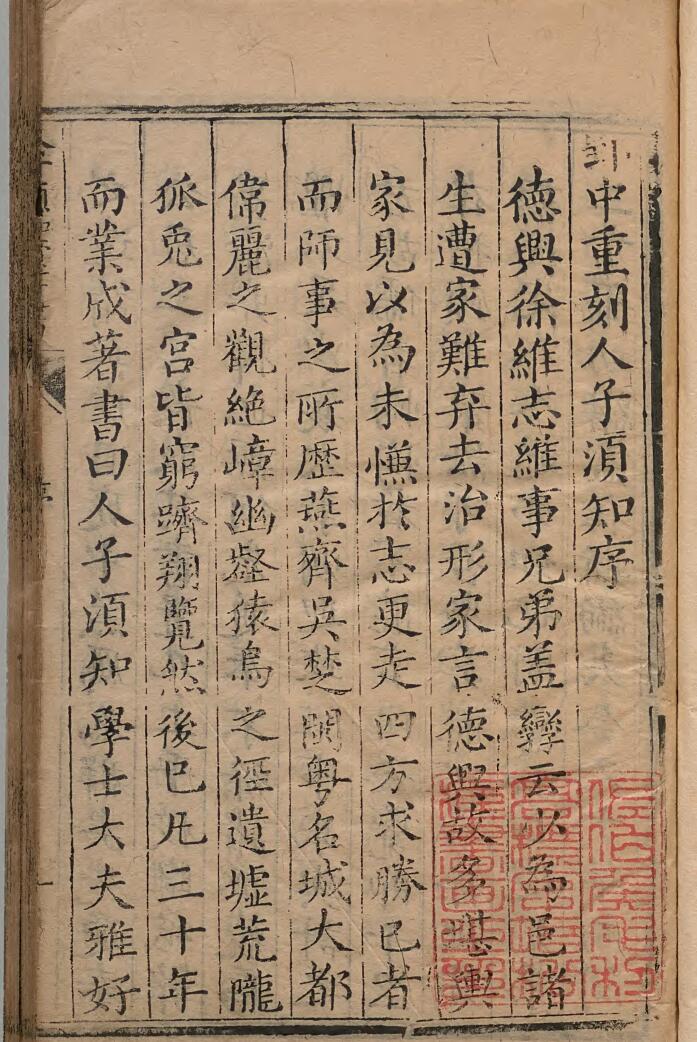 中重刻人子須知序
德興徐維志維事兄弟盖孿云少為邑諸
生遭家難弃去治形家言德興故多堪輿
家見以為未慊於志更走四方求勝已者
而師事之所歷燕齊吳楚閩粤名城大都
偉麗之觀絶嶂幽壑猿鳥之徑遺墟荒隴
狐兎之宮皆窮躋翔覽然後已凡三十年
而業成著書曰人子須知學士大夫雅好